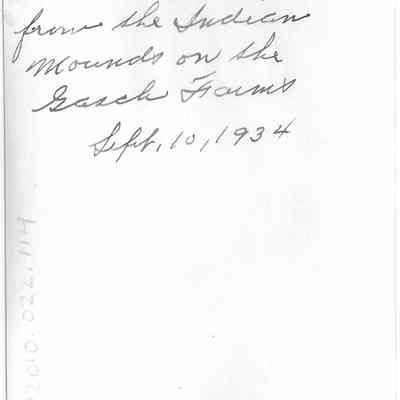 from the Indian
Mounds on the
Gasch Farms
Sept. 10, 1934
2010.022.114